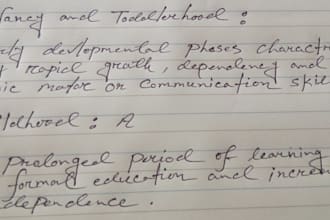 fancy and Toddlerhood :
rly devlopmental phases charactr
rapid groath, dependency and
ic motor or communication skil
ldhood : A
Prolonged period of learning
formal education and increm
dependence .